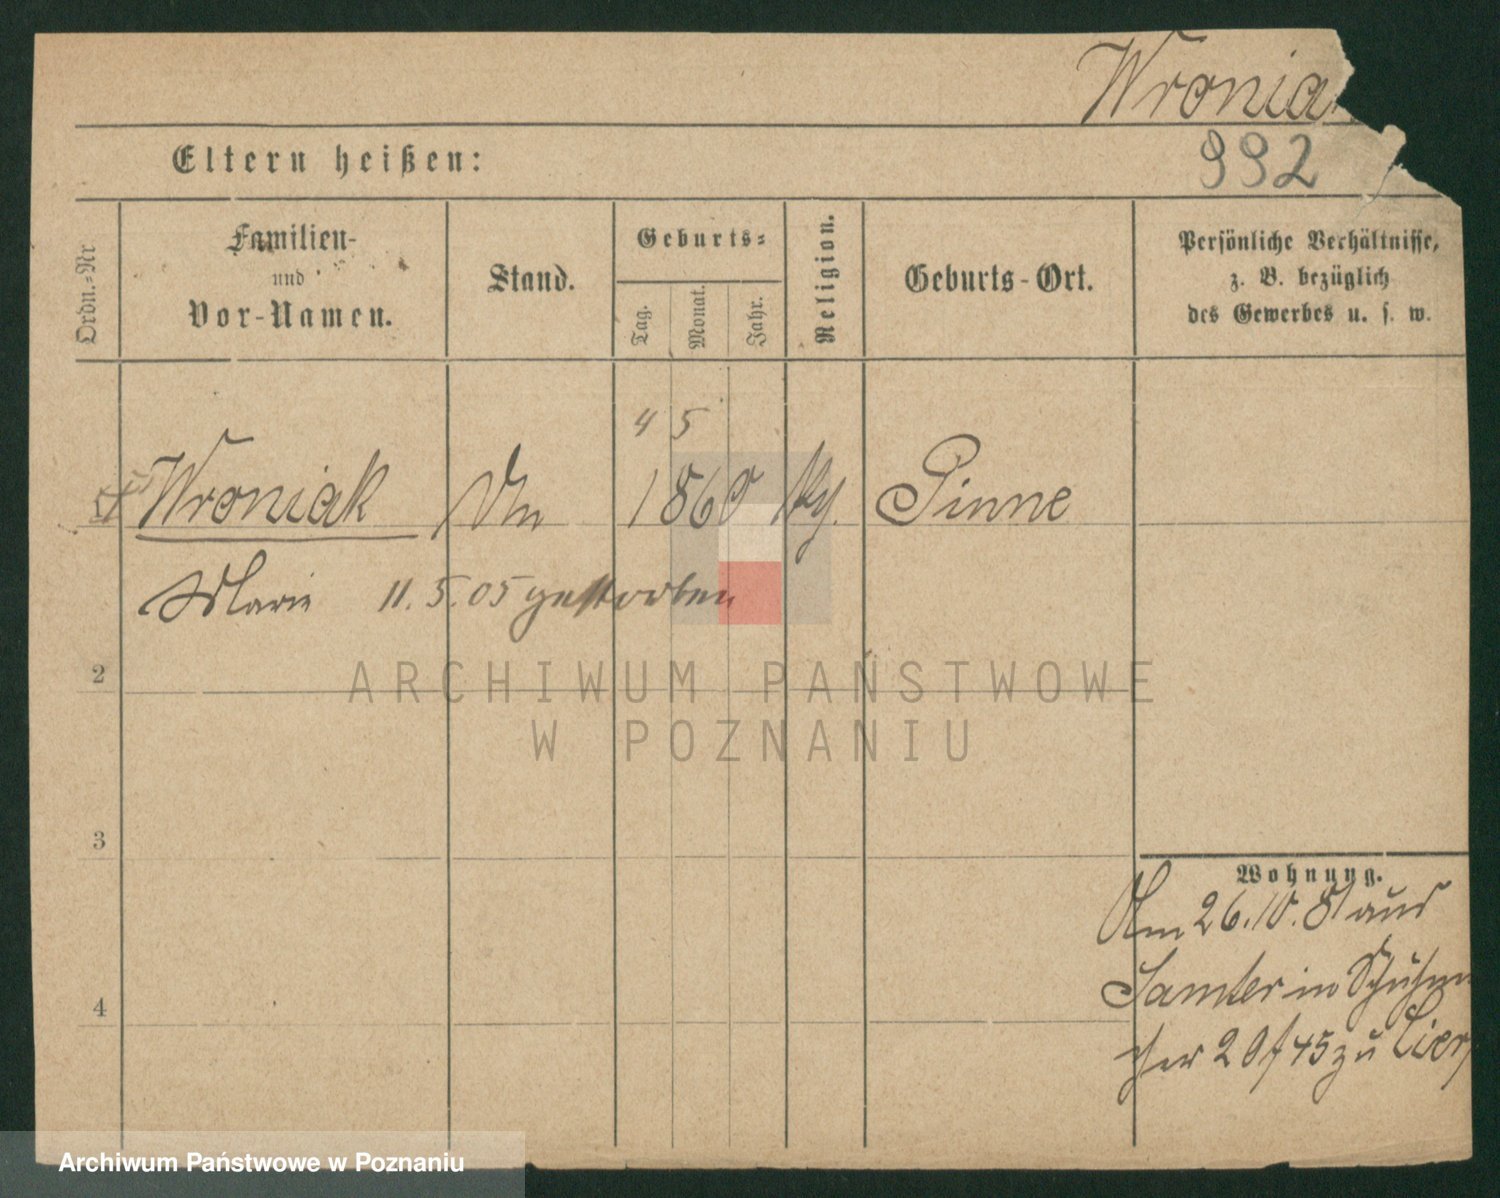 Wronia
992
Eltern heißen:
Ordn.=Nr
Familien-
und
Vor-Namen.
Stand.
Geburts=
Tag.
Monat.
Jahr.
Religion.
Geburts-Ort.
Persönliche Verhältnisse,
z. B. bezüglich
des Gewerbes u. s. w.
4 5
Wroniak 1860 Pinne
Marie 11.5.05 gestorben
2
3
4
Wohnung.
Am 26.10.81 aus
Samter in Schuhm
cher 20/45 zu
ARCHIWUM PAŃSTWOWE
W POZNANIU
Archiwum Państwowe w Poznaniu